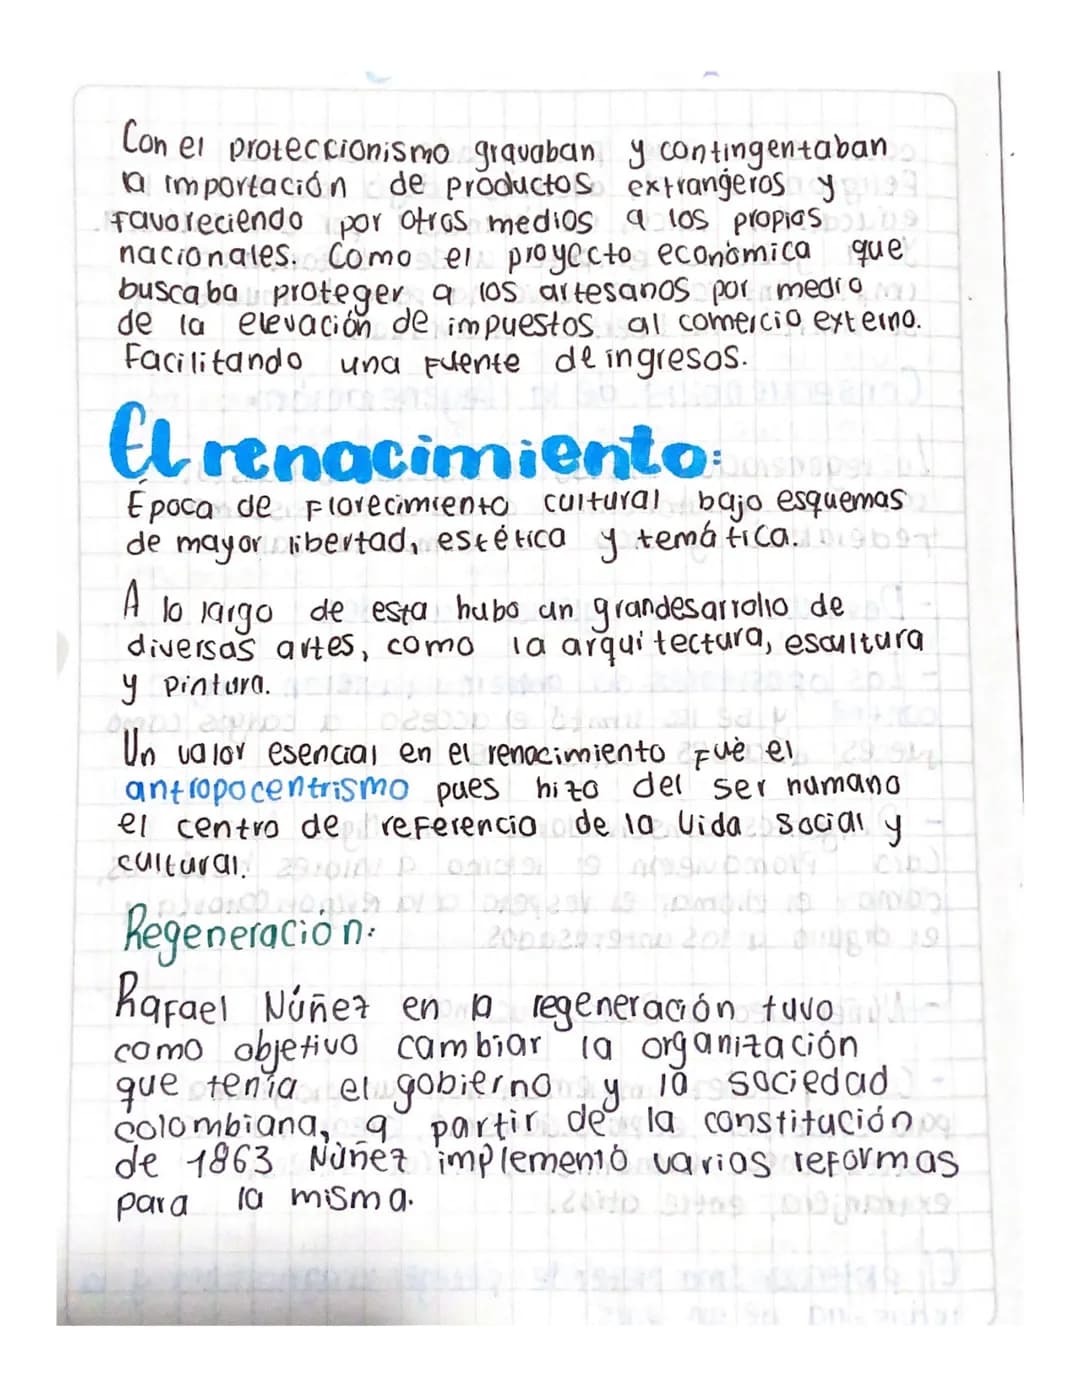 Con el proteccionismo gravaban y contingentaban
la importación de productos extrangeros y
favoreciendo por otros medios a los propios
nacionales. Como el proyecto económica que
buscaba proteger a los artesanos por medio
de la elevación de impuestos al comercio externo.
Facilitando una fuente de ingresos.
El renacimiento:
Época de Florecimiento cultural bajo esquemas
de mayor libertad, estética y temática.
A lo largo de esta hubo un gran desarrollo de
diversas artes, como la arquitectura, escultura
y pintura.
Un valor esencial en el renacimiento fué el
antropocentrismo pues hizo del ser humano
el centro de referencia de la vida social y
cultural.
Regeneración:
Rafael Núñez en la regeneración tuvo
como objetivo cambiar la organización
que tenía el gobierno y la sociedad
colombiana, a partir de la constitución
de 1863 Núñez implementó varias reformas
para la misma.